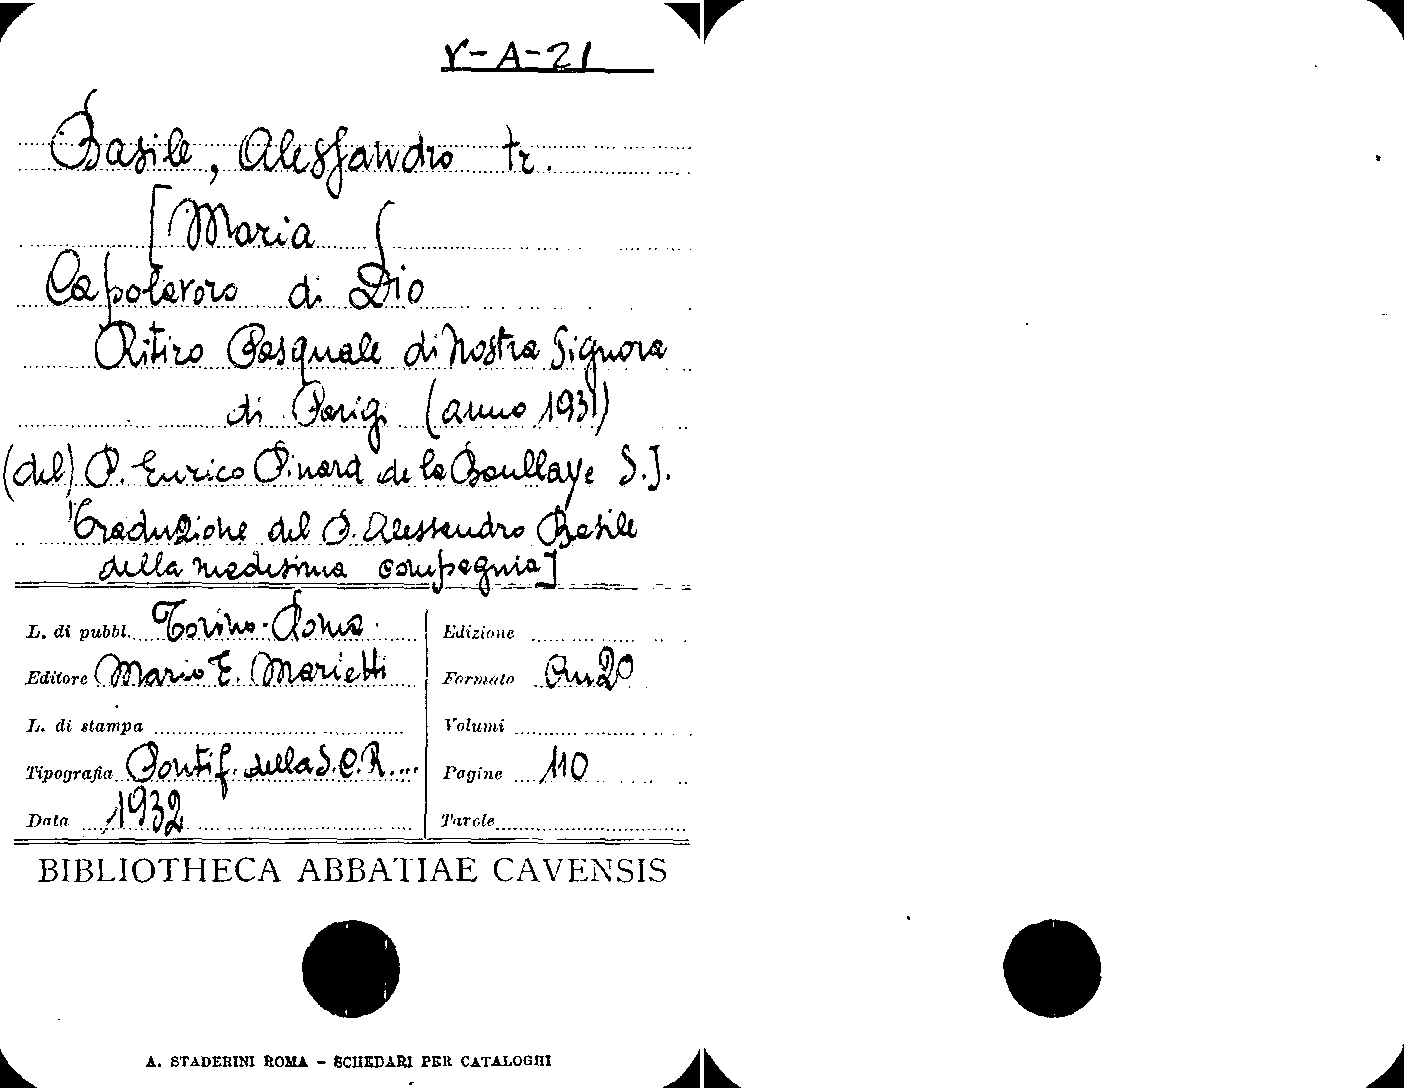 V-A-21
Basile, Alessandro tr.
[Maria
Capolavoro di Dio
Ritiro Pasquale di Nostra Signora
di Parigi (anno 1931)
(del) P. Enrico Pinard de la Boullaye S.J.
Traduzione del P. Alessandro Basile
della medesima compagnia]
L. di pubbl. Torino-Roma
Editore Mario E. Marietti
L. di stampa
Tipografia Pontif. della S.C.R...
Data 1932
Edizione
Formato 20
Volumi
Pagine 110
Tavole
BIBLIOTHECA ABBATIAE CAVENSIS
A. STADERINI ROMA – SCHEDARI PER CATALOGHI